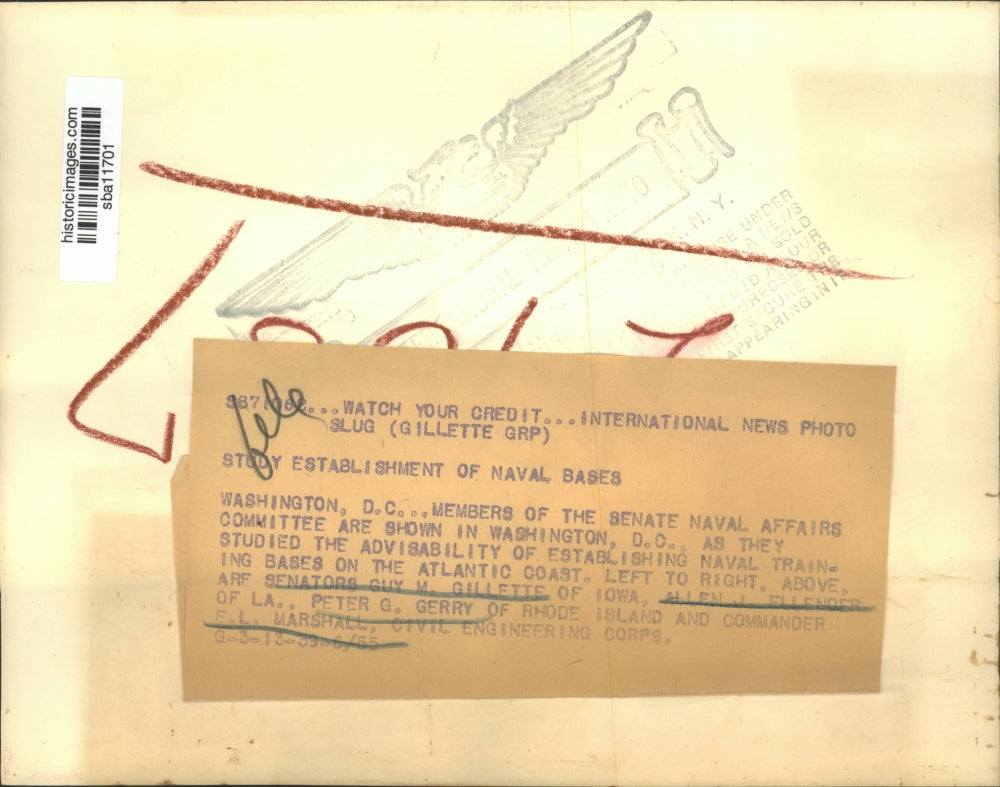 historicimages.com
sba11701
PHOTO
N. Y.
UNDER
A NEWS
SOLD
OUR
OR
PURPOSE
SECURE THE
APPEARING IN IT
file
WATCH YOUR CREDIT...INTERNATIONAL NEWS PHOTO
SLUG (GILLETTE GRP)
STUDY ESTABLISHMENT OF NAVAL BASES
WASHINGTON, D.C...MEMBERS OF THE SENATE NAVAL AFFAIRS
COMMITTEE ARE SHOWN IN WASHINGTON, D.C., AS THEY
STUDIED THE ADVISABILITY OF ESTABLISHING NAVAL TRAIN-
ING BASES ON THE ATLANTIC COAST. LEFT TO RIGHT, ABOVE,
ARE SENATORS GUY M. GILLETTE OF IOWA, ALLEN J. ELLENDER
OF LA., PETER G. GERRY OF RHODE ISLAND AND COMMANDER
E.L. MARSHALL, CIVIL ENGINEERING CORPS.
G-3-13-39-6/55